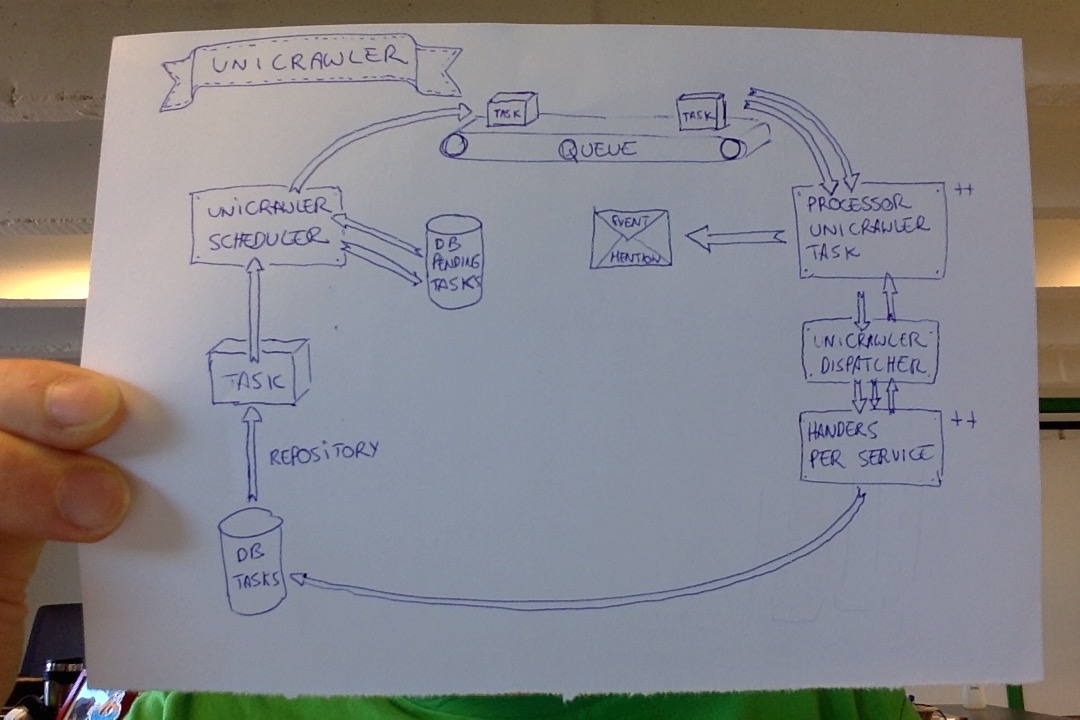 UNICRAWLER
TASK
TASK
QUEUE
UNICRAWLER
SCHEDULER
DB
PENDING
TASKS
EVENT
MENTION
PROCESSOR
UNICRAWLER
TASK
++
UNICRAWLER
DISPATCHER
HANDERS
PER SERVICE
++
TASK
REPOSITORY
DB
TASKS